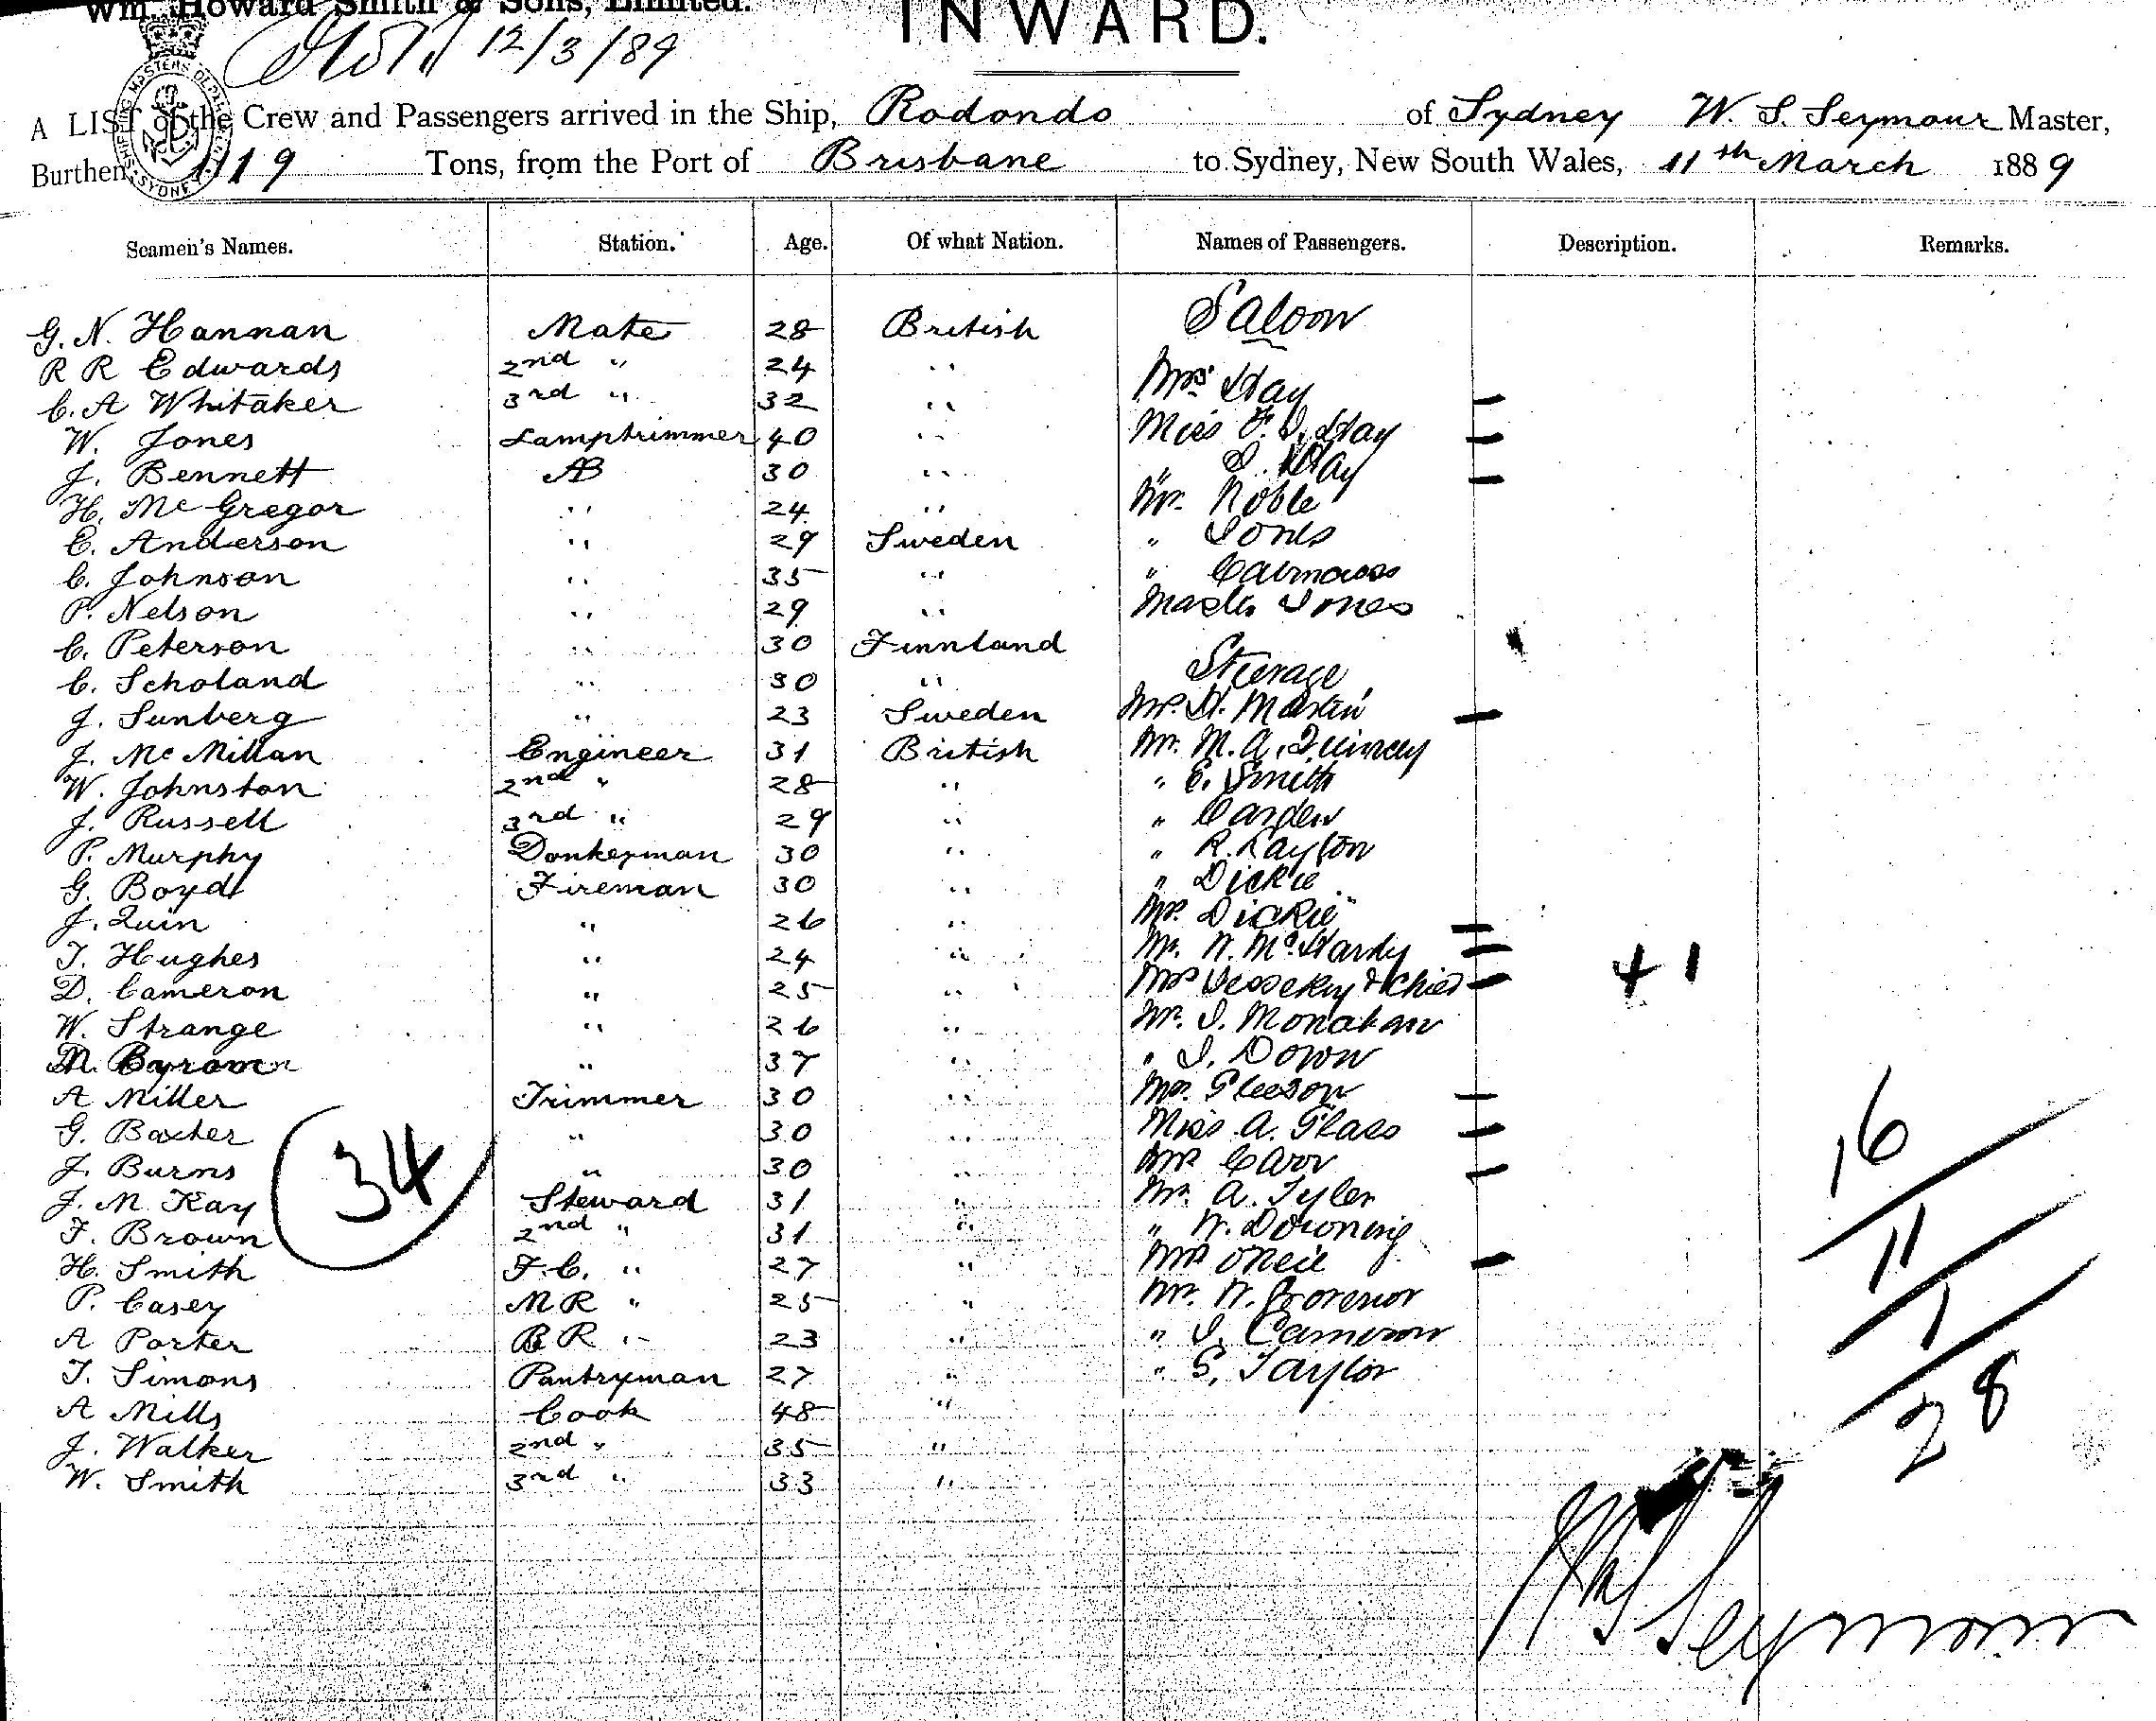 Wm. Howard Smith & Sons, Limited.
INWARD.
12/3/89
SHIPPING MASTERS DEPARTMENT SYDNEY
A LIST of the Crew and Passengers arrived in the Ship, Rodondo of Sydney W. S. Seymour Master,
Burthen 1119 Tons, from the Port of Brisbane to Sydney, New South Wales, 11th March 1889
Seamen's Names. Station. Age. Of what Nation. Names of Passengers. Description. Remarks.
G. N. Hannan Mate 28 British Saloon
R R Edwards 2nd " 24 " Mrs Hay
C. A Whitaker 3rd " 32 " —
W. Jones Lamptrimmer 40 " Miss F. I. Hay —
J. Bennett AB 30 " " I. Hay —
H. Mc Gregor " 24 " Mr. Noble
C. Anderson " 29 Sweden " Jones
C. Johnson " 35 " " Cairncross
P. Nelson " 29 " Master Jones
C. Peterson " 30 Finnland
C. Scholand " 30 " Steerage
J. Sunberg " 23 Sweden Mrs. H. Martin —
J. Mc Millan Engineer 31 British Mr. M. A. Quincey
W. Johnston 2nd " 28 " " E. Smith
J. Russell 3rd " 29 " " Carden
P. Murphy Donkeyman 30 " " R. Layton
G. Boyd Fireman 30 " " Dickie
J. Quin " 26 " Mrs Dickie —
T. Hughes " 24 " Mr. W. McHardy —
D. Cameron " 25 " Mrs & Child — + 1
W. Strange " 26 " Mr. J. Monahan
M. Byrom " 37 " " J. Down
A Miller Trimmer 30 " Mrs. Gleeson —
G. Baxter " 30 " Miss A. Glass —
J. Burns " 30 " Mrs Carr —
34
J. M. Kay Steward 31 " Mr. A. Tyler
F. Brown 2nd " 31 " " W. Downing
H. Smith F.C. " 27 " Mrs O'Neil —
P. Casey M R " 25 " Mr. W.
A Porter B R " 23 " " J. Cameron
T. Simons Pantryman 27 " " S. Taylor
A Mills Cook 48 "
J. Walker 2nd " 35 "
W. Smith 3rd " 33 "
16
11
1
28
W S Seymour